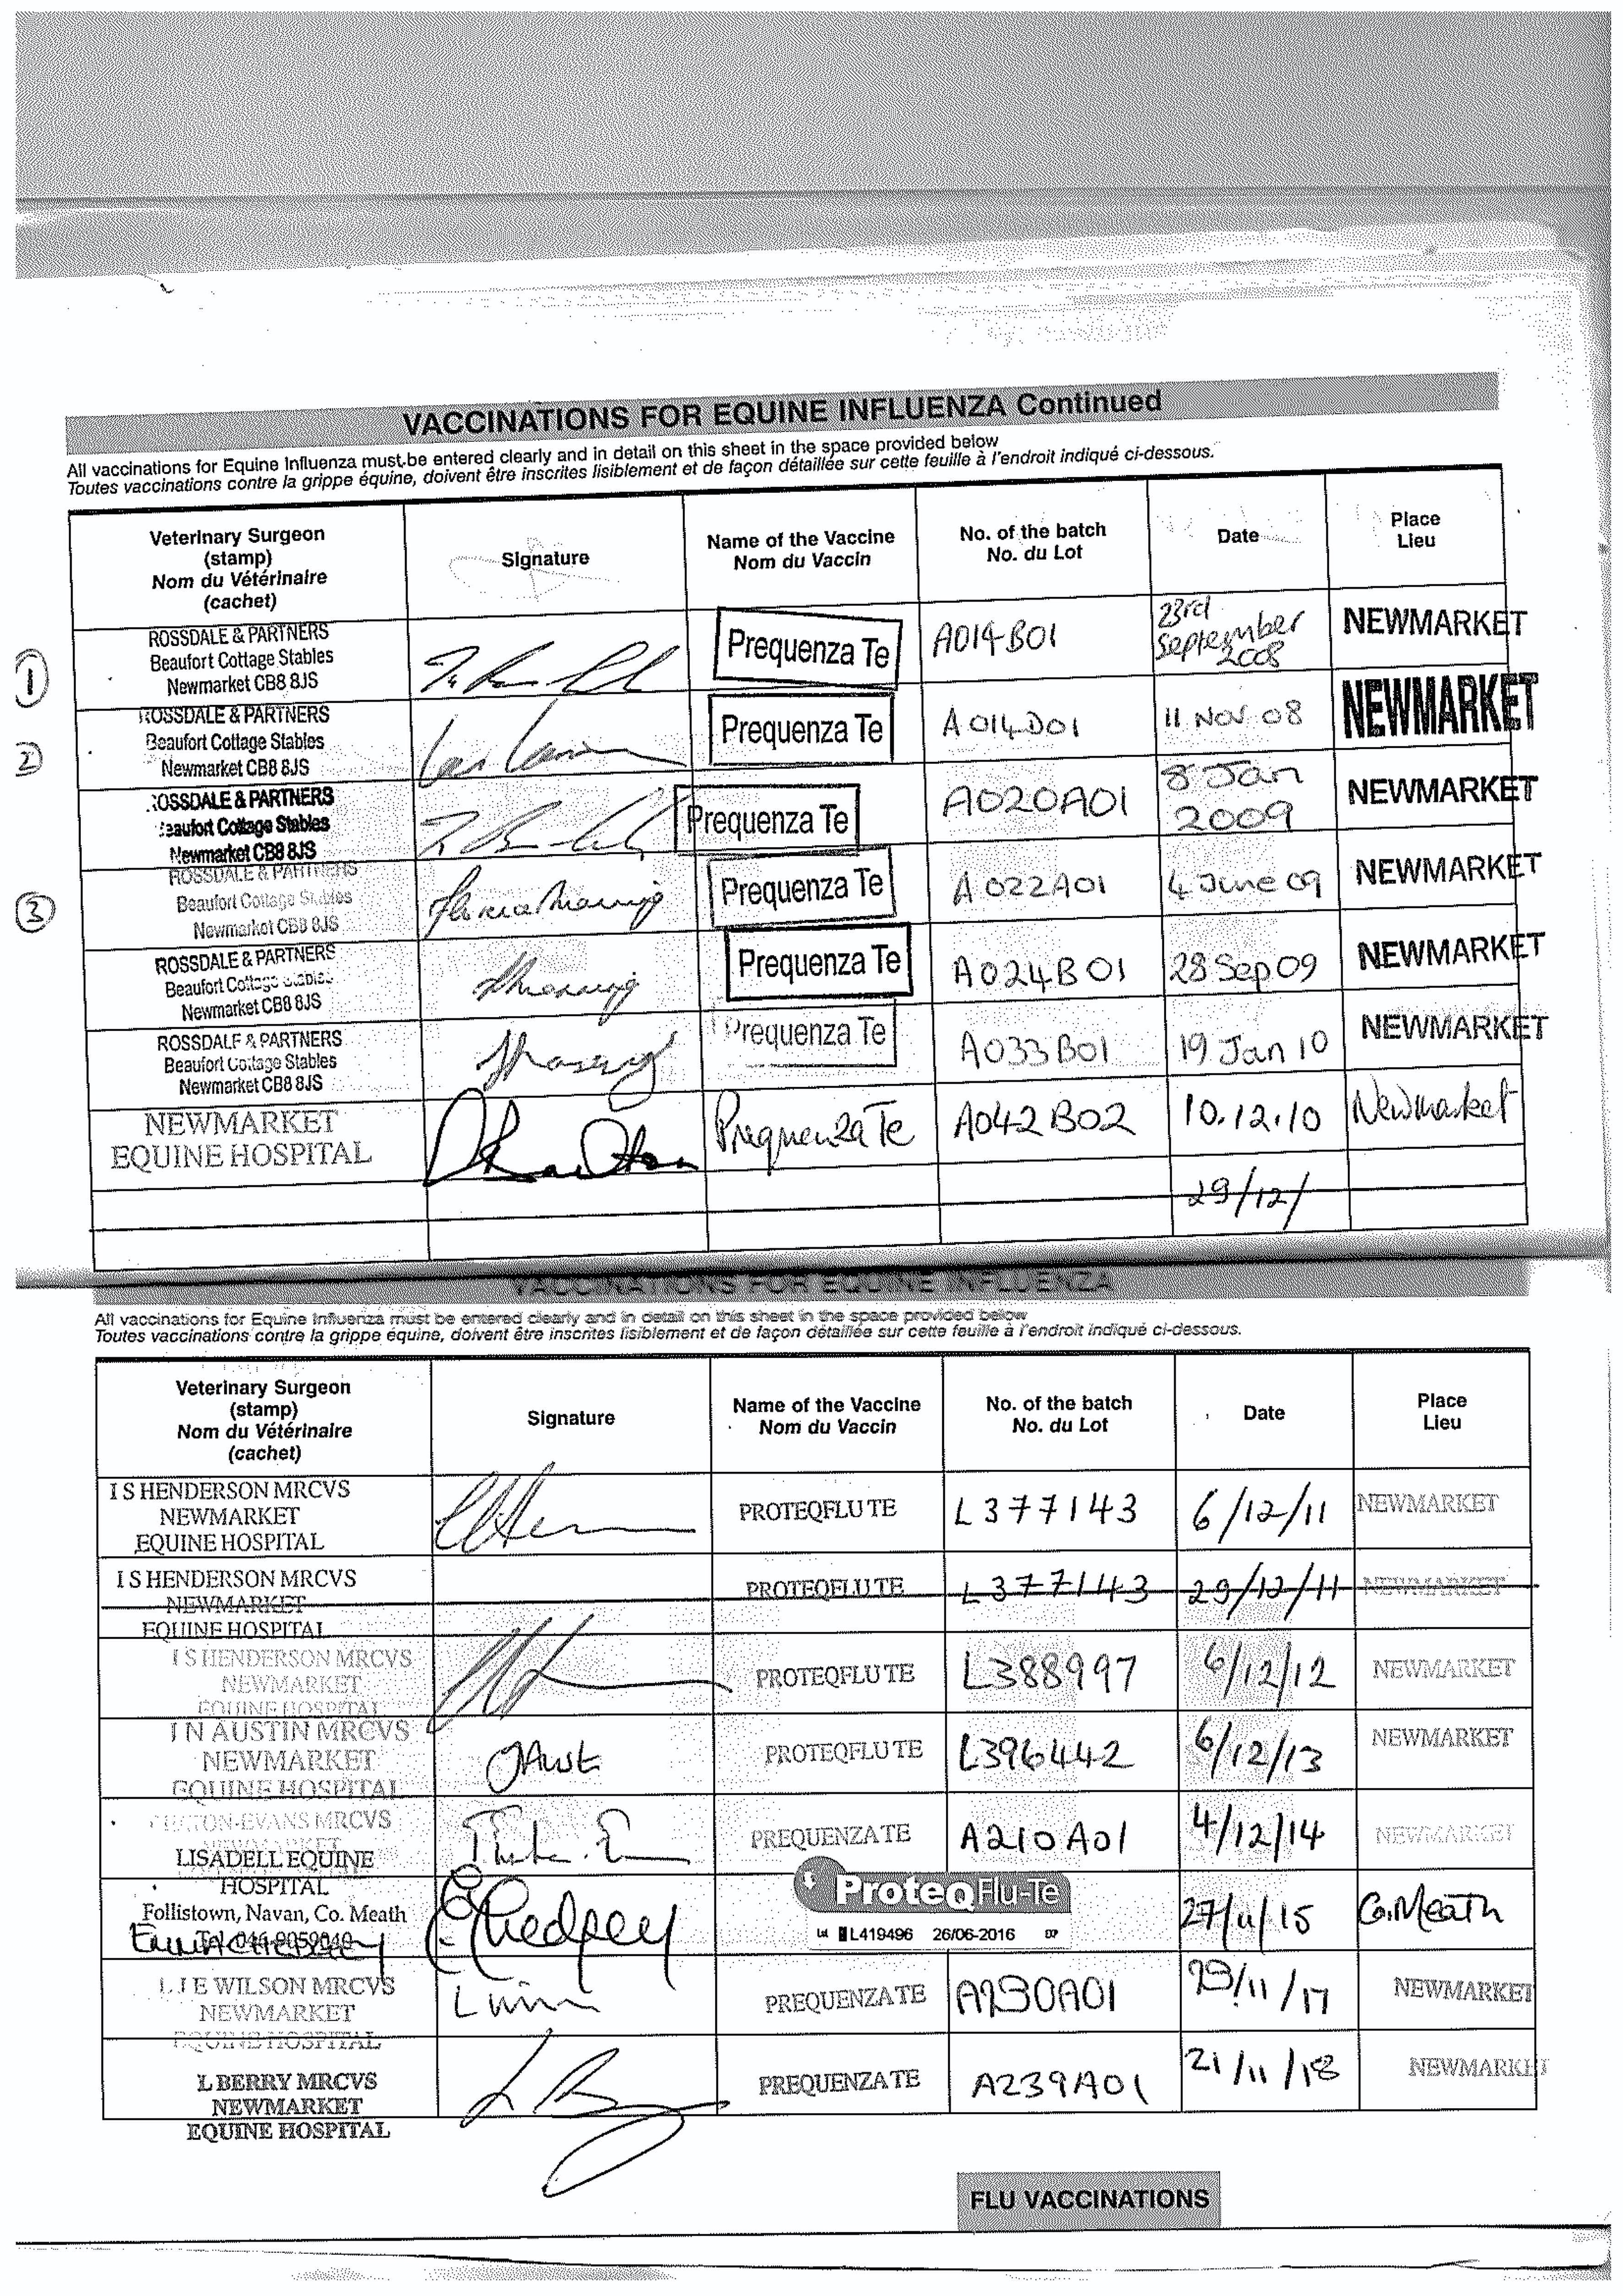 VACCINATIONS FOR EQUINE INFLUENZA Continued
All vaccinations for Equine Influenza must be entered clearly and in detail on this sheet in the space provided below
Toutes vaccinations contre la grippe équine, doivent être inscrites lisiblement et de façon détaillée sur cette feuille à l'endroit indiqué ci-dessous.
Veterinary Surgeon
(stamp)
Nom du Vétérinaire
(cachet)
Signature
Name of the Vaccine
Nom du Vaccin
No. of the batch
No. du Lot
Date
Place
Lieu
1
ROSSDALE & PARTNERS
Beaufort Cottage Stables
Newmarket CB8 8JS
Prequenza Te
A014B01
23rd
September
2008
NEWMARKET
2
ROSSDALE & PARTNERS
Beaufort Cottage Stables
Newmarket CB8 8JS
Prequenza Te
A014D01
11 Nov 08
NEWMARKET
ROSSDALE & PARTNERS
Beaufort Cottage Stables
Newmarket CB8 8JS
Prequenza Te
A020A01
8 Jan
2009
NEWMARKET
3
ROSSDALE & PARTNERS
Beaufort Cottage Stables
Newmarket CB8 8JS
Prequenza Te
A022A01
4 June 09
NEWMARKET
ROSSDALE & PARTNERS
Beaufort Cottage Stables
Newmarket CB8 8JS
Prequenza Te
A024B01
28 Sep 09
NEWMARKET
ROSSDALE & PARTNERS
Beaufort Cottage Stables
Newmarket CB8 8JS
Prequenza Te
A033B01
19 Jan 10
NEWMARKET
NEWMARKET
EQUINE HOSPITAL
Prequenza Te
A042B02
10.12.10
Newmarket
29/12/
VACCINATIONS FOR EQUINE INFLUENZA
All vaccinations for Equine Influenza must be entered clearly and in detail on this sheet in the space provided below
Toutes vaccinations contre la grippe équine, doivent être inscrites lisiblement et de façon détaillée sur cette feuille à l'endroit indiqué ci-dessous.
Veterinary Surgeon
(stamp)
Nom du Vétérinaire
(cachet)
Signature
Name of the Vaccine
Nom du Vaccin
No. of the batch
No. du Lot
Date
Place
Lieu
I S HENDERSON MRCVS
NEWMARKET
EQUINE HOSPITAL
PROTEQFLU TE
L377143
6/12/11
NEWMARKET
I S HENDERSON MRCVS
NEWMARKET
EQUINE HOSPITAL
PROTEQFLU TE
L377143
29/12/11
NEWMARKET
I S HENDERSON MRCVS
NEWMARKET
EQUINE HOSPITAL
PROTEQFLU TE
L388997
6/12/12
NEWMARKET
J N AUSTIN MRCVS
NEWMARKET
EQUINE HOSPITAL
PROTEQFLU TE
L396442
6/12/13
NEWMARKET
MRCVS
NEWMARKET
PREQUENZA TE
A210A01
4/12/14
NEWMARKET
LISADELL EQUINE
HOSPITAL
Follistown, Navan, Co. Meath
Tel. 046 9059040
ProteqFlu-Te
Lot L419496 26/06-2016
27/11/15
Co. Meath
L J E WILSON MRCVS
NEWMARKET
EQUINE HOSPITAL
PREQUENZA TE
A230A01
29/11/17
NEWMARKET
L BERRY MRCVS
NEWMARKET
EQUINE HOSPITAL
PREQUENZA TE
A239A01
21/11/18
NEWMARKET
FLU VACCINATIONS